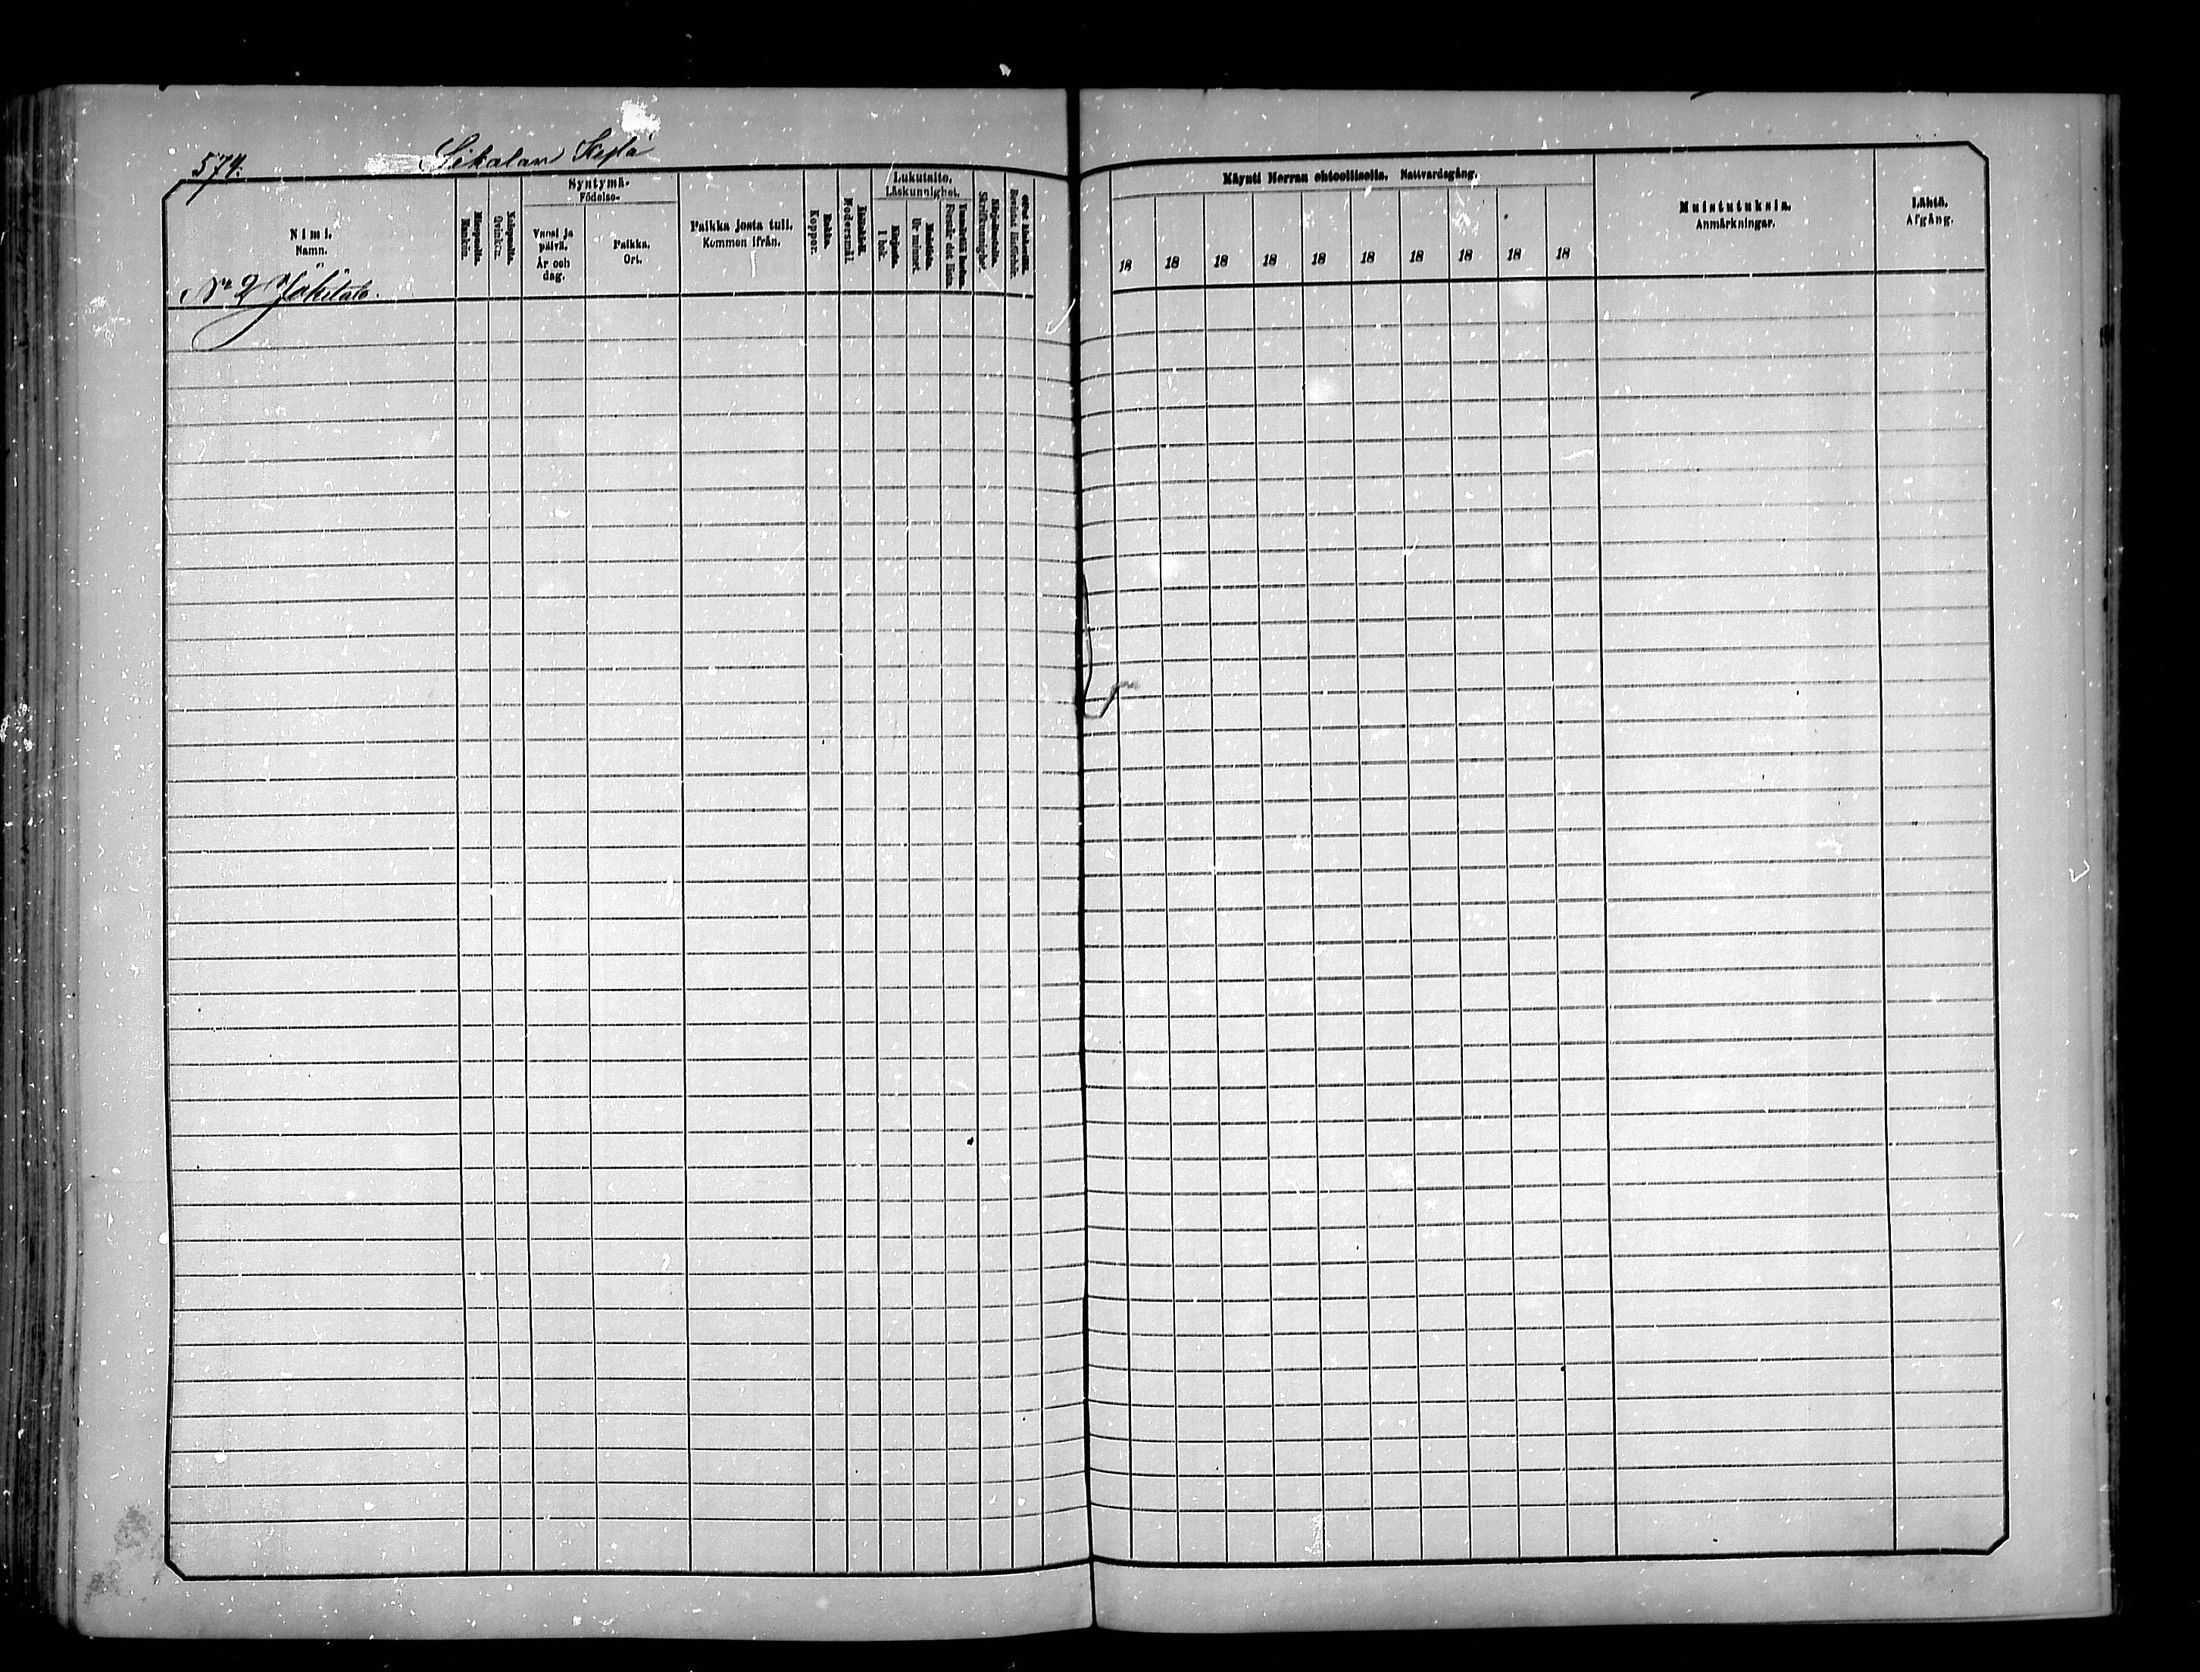 574.
Sikalan Kylä
Nimi.
Namn.
No 2 Jokitalo.
Miespuolia.
Mankön.
Naispuolia.
Qvinkön.
Syntymä-
Födelse-
Vuosi ja
päivä.
År och
dag.
Paikka.
Ort.
Paikka josta tuli.
Kommen ifrån.
Rokko.
Koppor.
Modersmål.
Lukutaito.
Läskunnighet.
Kirjasta.
I bok.
Ur minnet.
Käynti Herran ehtoollisella. Nattvardsgång.
18 18 18 18 18 18 18 18 18 18
Muistutuksia.
Anmärkningar.
Lähtö.
Afgång.